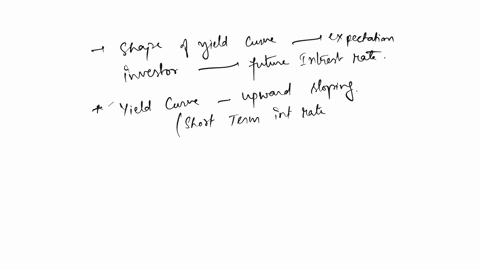 → Shape of yield curve → expectation
investor → future Intrest rate.
* Yield Curve - upward sloping.
(Short Term int rate